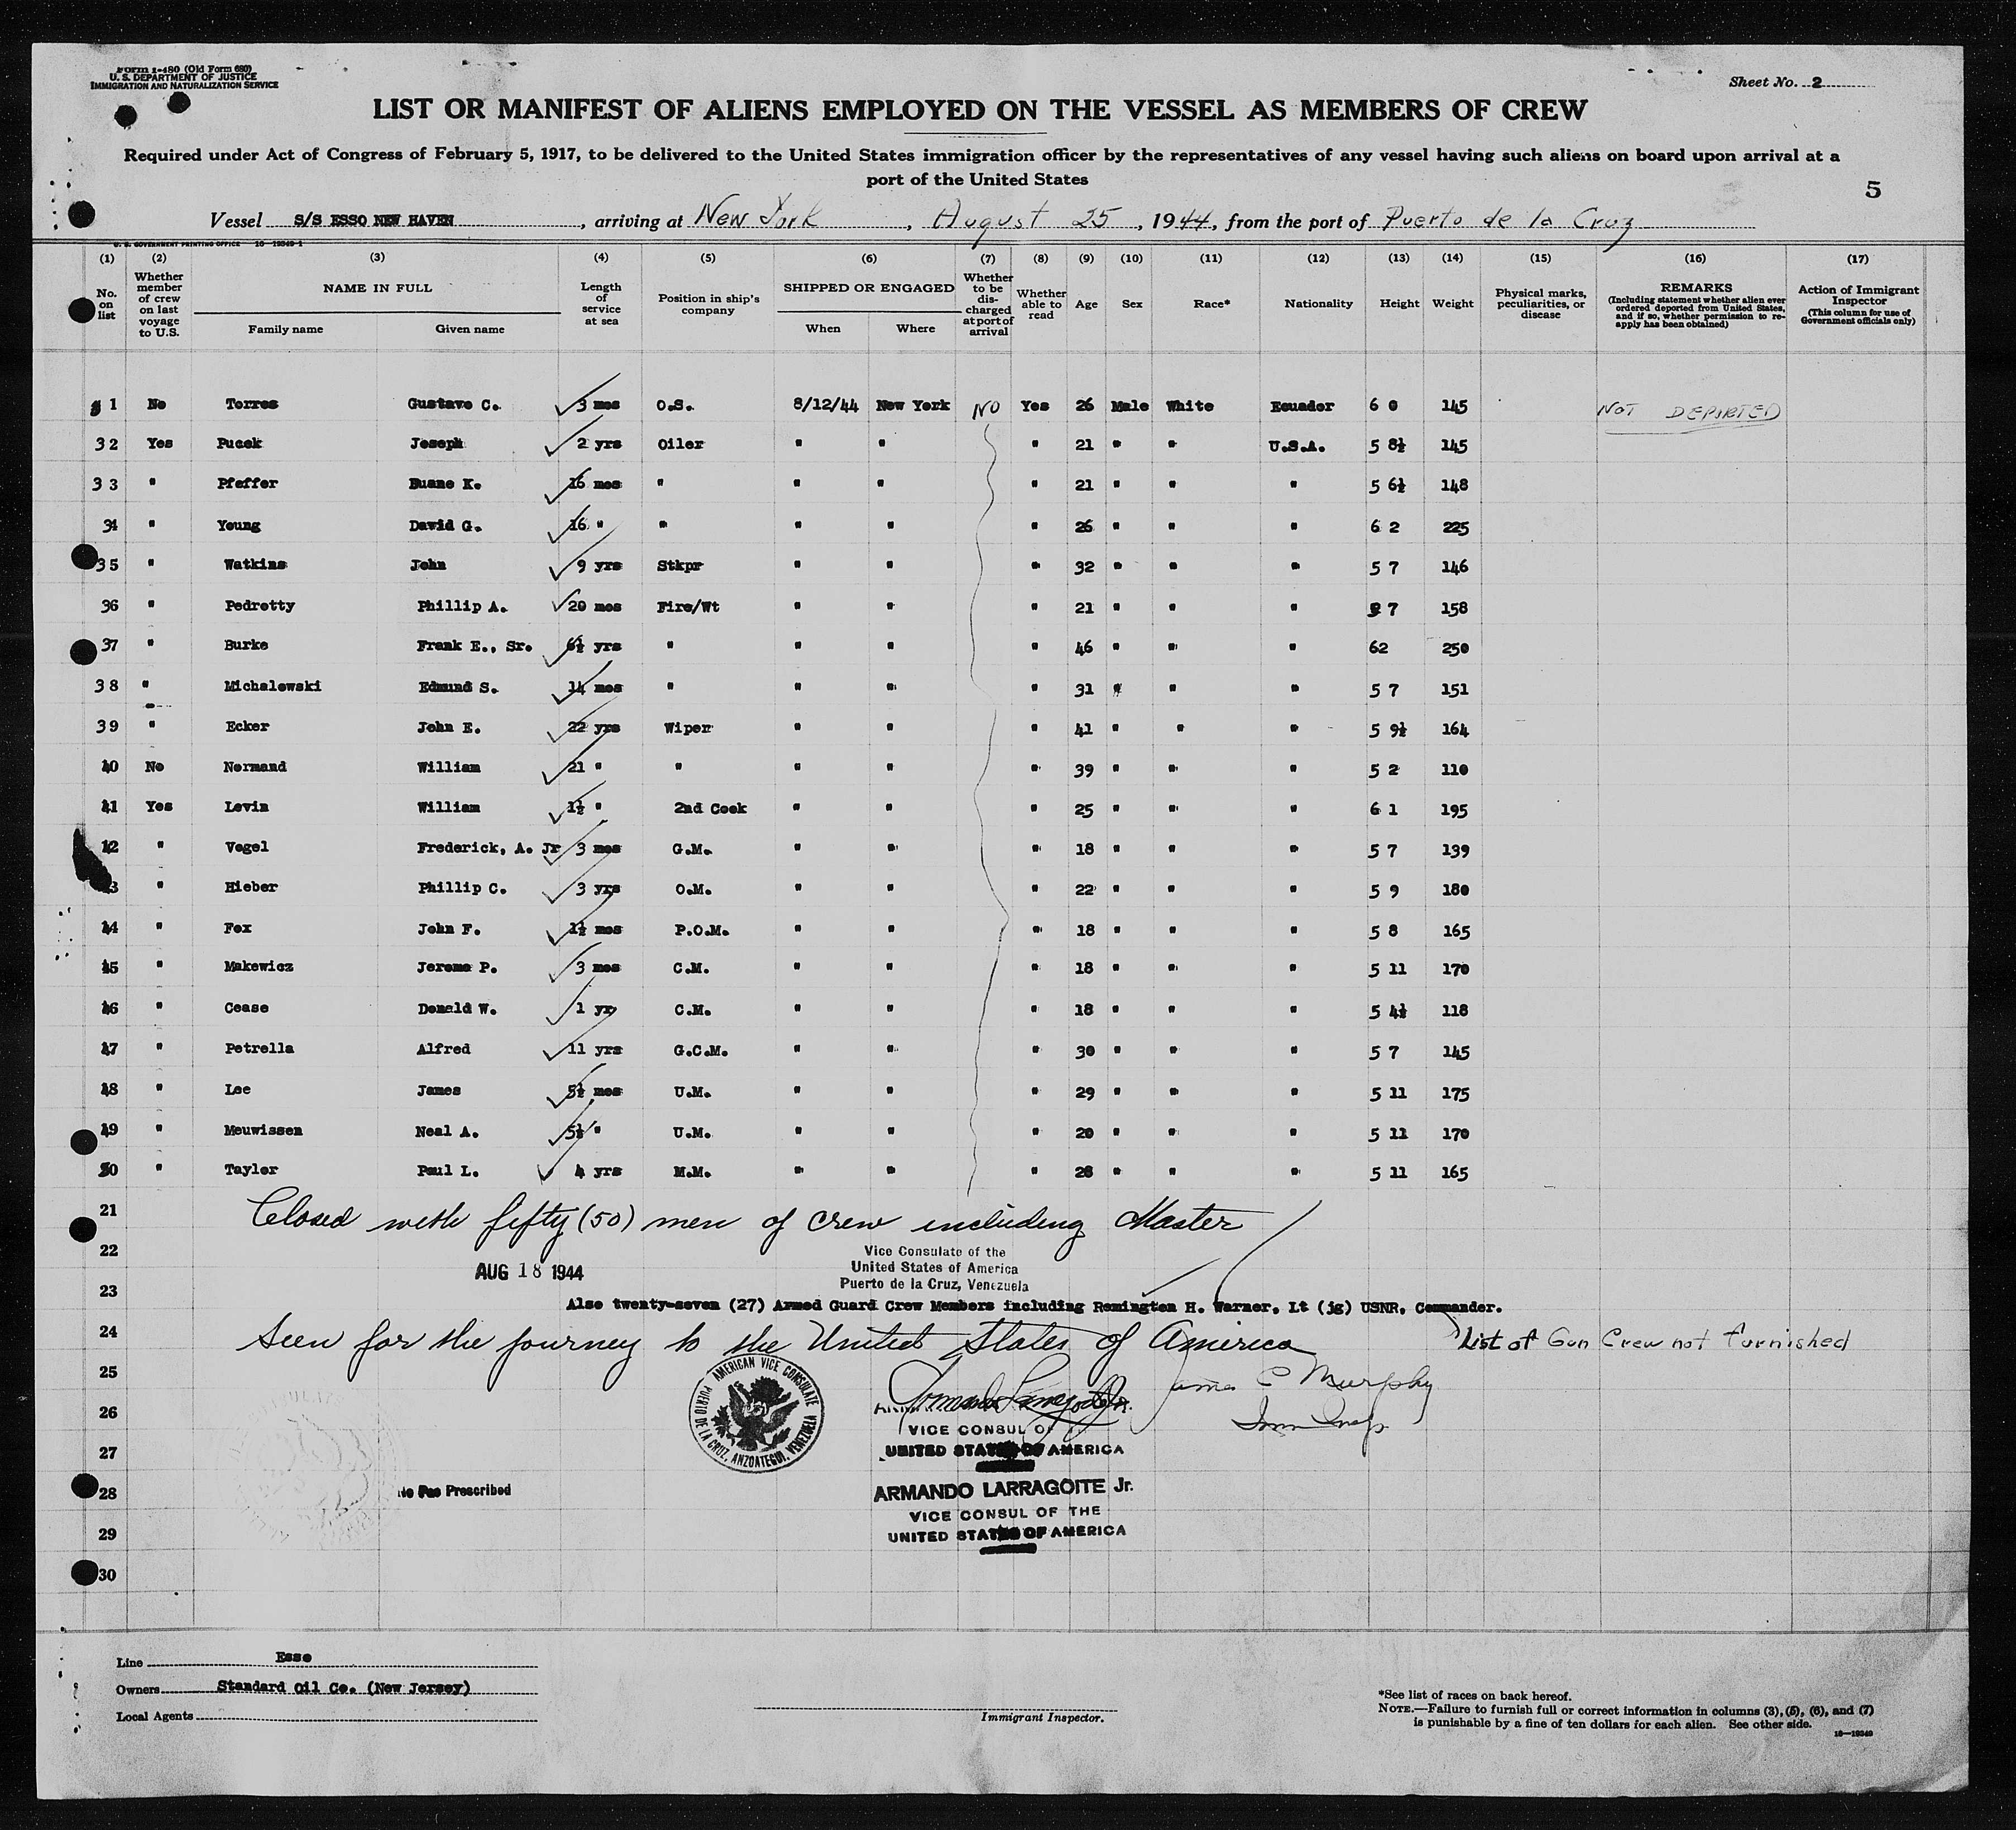 Form I-480 (Old Form 680)
U. S. DEPARTMENT OF JUSTICE
IMMIGRATION AND NATURALIZATION SERVICE
Sheet No. 2
LIST OR MANIFEST OF ALIENS EMPLOYED ON THE VESSEL AS MEMBERS OF CREW
Required under Act of Congress of February 5, 1917, to be delivered to the United States immigration officer by the representatives of any vessel having such aliens on board upon arrival at a
port of the United States
5
Vessel S/S ESSO NEW HAVEN, arriving at New York, August 25, 1944, from the port of Puerto de la Cruz
U. S. GOVERNMENT PRINTING OFFICE 16-19349-1
(1) (2) (3) (4) (5) (6) (7) (8) (9) (10) (11) (12) (13) (14) (15) (16) (17)
No. on list
Whether member of crew on last voyage to U.S.
NAME IN FULL
Family name Given name
Length of service at sea
Position in ship's company
SHIPPED OR ENGAGED
When Where
Whether to be discharged at port of arrival
Whether able to read
Age Sex Race* Nationality Height Weight
Physical marks, peculiarities, or disease
REMARKS
(Including statement whether alien ever ordered deported from United States, and if so, whether permission to re-apply has been obtained)
Action of Immigrant Inspector
(This column for use of Government officials only)
1 No Torres Gustavo C. 3 mos O.S. 8/12/44 New York NO Yes 26 Male White Ecuador 6 0 145 NOT DEPORTED
32 Yes Pucek Joseph 2 yrs Oiler " " " 21 " " U.S.A. 5 8½ 145
33 " Pfeffer Duane K. 16 mos " " " " 21 " " " 5 6½ 148
34 " Young David G. 16 " " " " " 26 " " " 6 2 225
35 " Watkins John 9 yrs Stkpr " " " 32 " " " 5 7 146
36 " Pedretty Phillip A. 20 mos Fire/Wt " " " 21 " " " 5 7 158
37 " Burke Frank E., Sr. 6½ yrs " " " " 46 " " " 62 250
38 " Michalewski Edmund S. 14 mos " " " " 31 " " " 5 7 151
39 " Ecker John E. 22 yrs Wiper " " " 41 " " " 5 9½ 164
40 No Normand William 21 " " " " " 39 " " " 5 2 110
41 Yes Levin William 1½ " 2nd Cook " " " 25 " " " 6 1 195
42 " Vogel Frederick, A. Jr 3 mos G.M. " " " 18 " " " 5 7 139
43 " Hieber Phillip C. 3 yrs O.M. " " " 22 " " " 5 9 180
44 " Fox John F. 1½ mos P.O.M. " " " 18 " " " 5 8 165
45 " Makewicz Jerome P. 3 mos C.M. " " " 18 " " " 5 11 170
46 " Cease Donald W. 1 yr C.M. " " " 18 " " " 5 4½ 118
47 " Petrella Alfred 11 yrs G.C.M. " " " 30 " " " 5 7 145
48 " Lee James 5½ mos U.M. " " " 29 " " " 5 11 175
49 " Meuwissen Neal A. 5½ " U.M. " " " 20 " " " 5 11 170
50 " Taylor Paul L. 4 yrs M.M. " " " 28 " " " 5 11 165
21 Closed with fifty (50) men of crew including Master
22 Vice Consulate of the
AUG 18 1944 United States of America
23 Puerto de la Cruz, Venezuela
Also twenty-seven (27) Armed Guard Crew Members including Remington H. Warner, Lt (jg) USNR, Commander.
24 Seen for the journey to the United States of America
List of Gun Crew not furnished
25 AMERICAN VICE CONSULATE
PUERTO DE LA CRUZ, ANZOATEGUI, VENEZUELA
James C Murphy
26 Imm Insp
VICE CONSUL OF
27 UNITED STATES OF AMERICA
28 No Fee Prescribed
ARMANDO LARRAGOITE Jr.
VICE CONSUL OF THE
29 UNITED STATES OF AMERICA
30
Line Esso
Owners Standard Oil Co. (New Jersey)
Local Agents
Immigrant Inspector.
*See list of races on back hereof.
NOTE.—Failure to furnish full or correct information in columns (3), (5), (6), and (7)
is punishable by a fine of ten dollars for each alien. See other side.
16—19349